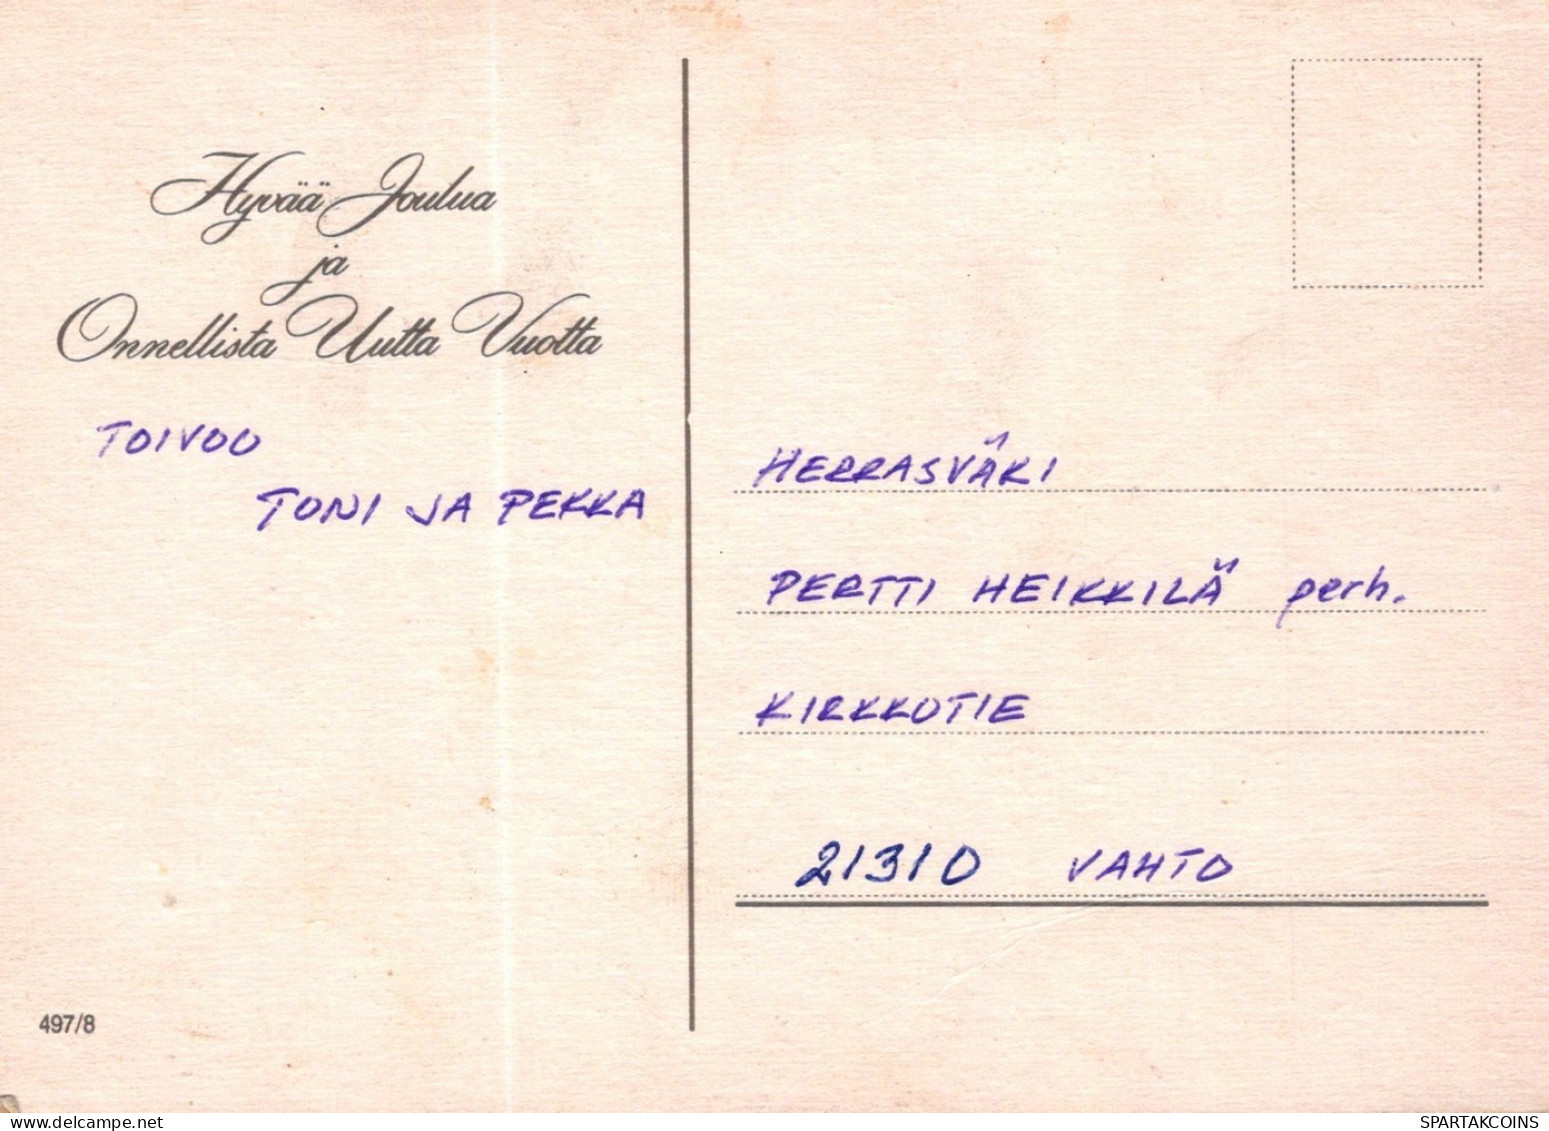 Hyvää Joulua
ja
Onnellista Uutta Vuotta
TOIVOO
TONI JA PEKKA
HERRASVÄKI
PERTTI HEIKKILÄ perh.
KIRKKOTIE
21310 VAHTO
497/8
delcampe.net
SPARTAKCOINS